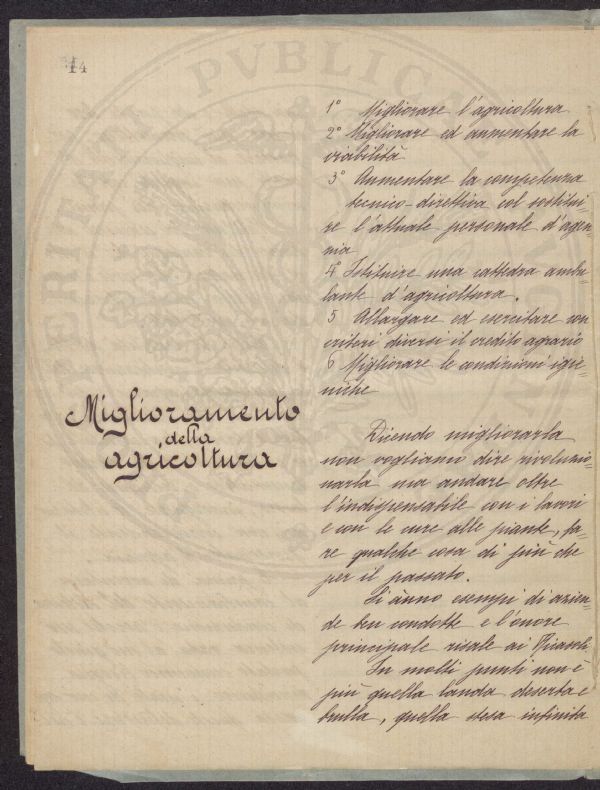 14
1° Migliorare l'agricoltura
2° Migliorare ed aumentare la
viabilità
3° Aumentare la competenza
tecnico-direttiva col sostitui-
re l'attuale personale d'agen-
zia
4 Istituire una cattedra ambu-
lante d'agricoltura.
5 Allargare ed esercitare con
criteri diversi il credito agrario
6 Migliorare le condizioni igie-
niche
Miglioramento
della
agricoltura
Dicendo migliorarla
non vogliamo dire rivoluzio-
narla ma andare oltre
l'indispensabile con i lavori
e con le cure alle piante, fa-
re qualche cosa di più che
per il passato.
Si ànno esempi di azien-
de ben condotte e l'onore
principale risale ai Ricasoli.
In molti punti non è
più quella landa deserta e
brulla, quella stesa infinita
PVBLICA